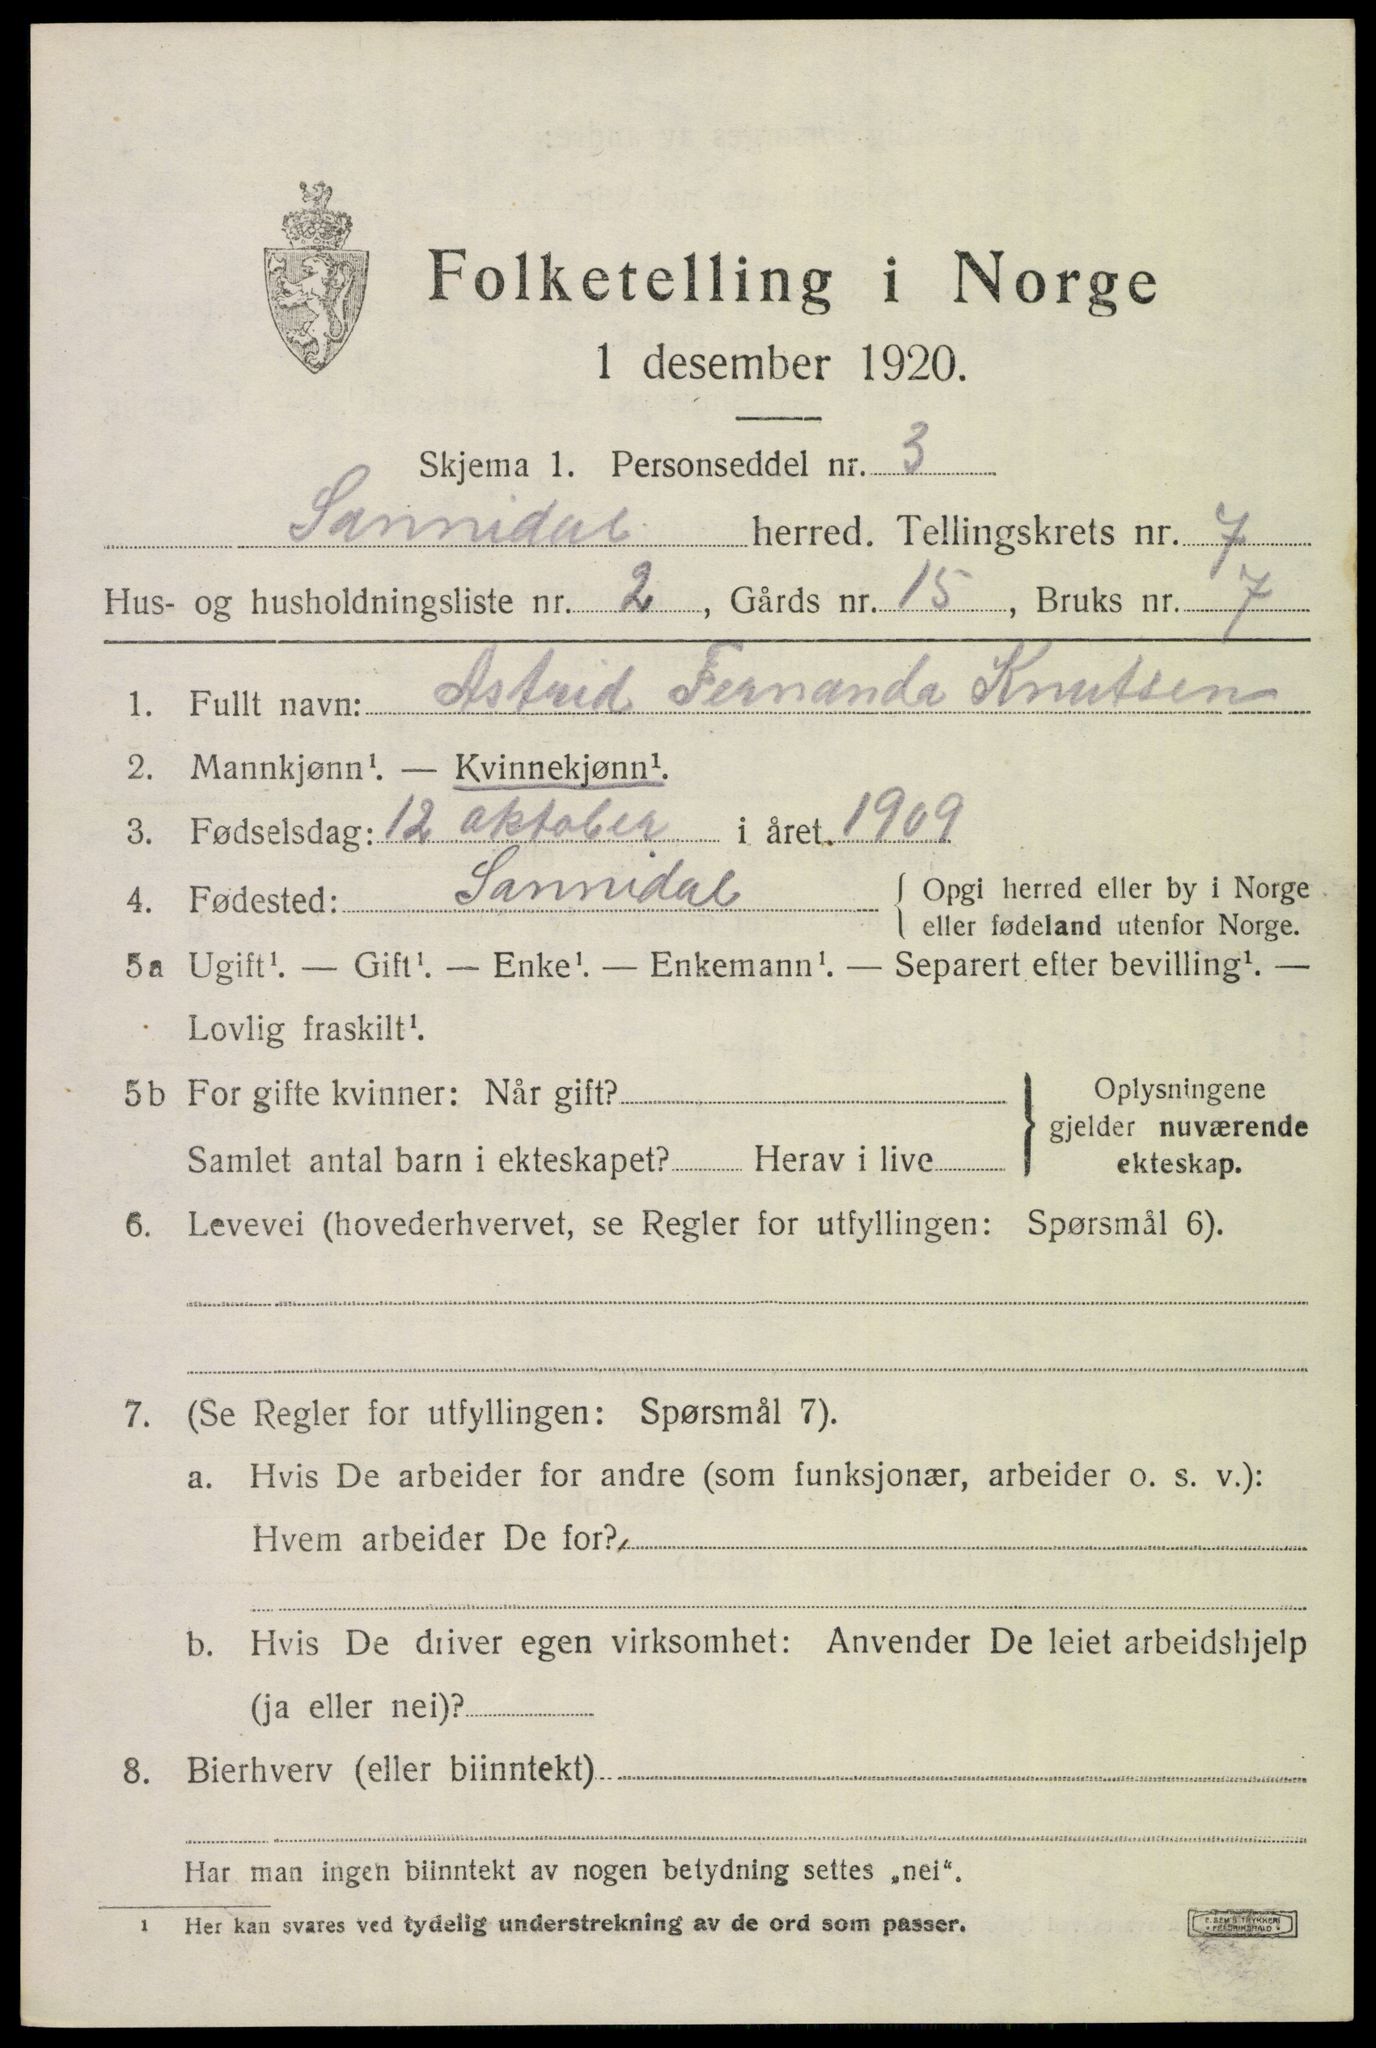 Folketelling i Norge
1 desember 1920.
Skjema 1. Personseddel nr. 3
Sannidal herred. Tellingskrets nr. 7
Hus- og husholdningsliste nr. 2, Gårds nr. 15, Bruks nr. 7
1. Fullt navn: Astrid Fernanda Knutsen
2. Mannkjønn¹. — Kvinnekjønn¹.
3. Fødselsdag: 12 oktober i året 1909
4. Fødested: Sannidal { Opgi herred eller by i Norge
eller fødeland utenfor Norge.
5a Ugift¹. — Gift¹. — Enke¹. — Enkemann¹. — Separert efter bevilling¹. —
Lovlig fraskilt¹.
5b For gifte kvinner: Når gift?
Samlet antal barn i ekteskapet? Herav i live
} Oplysningene
gjelder nuværende
ekteskap.
6. Levevei (hovederhvervet, se Regler for utfyllingen: Spørsmål 6).
7. (Se Regler for utfyllingen: Spørsmål 7).
a. Hvis De arbeider for andre (som funksjonær, arbeider o. s. v.):
Hvem arbeider De for?
b. Hvis De driver egen virksomhet: Anvender De leiet arbeidshjelp
(ja eller nei)?
8. Bierhverv (eller biinntekt)
Har man ingen biinntekt av nogen betydning settes „nei“.
¹ Her kan svares ved tydelig understrekning av de ord som passer.
E. SEM'S TRYKKERI
* FREDRIKSHALD *